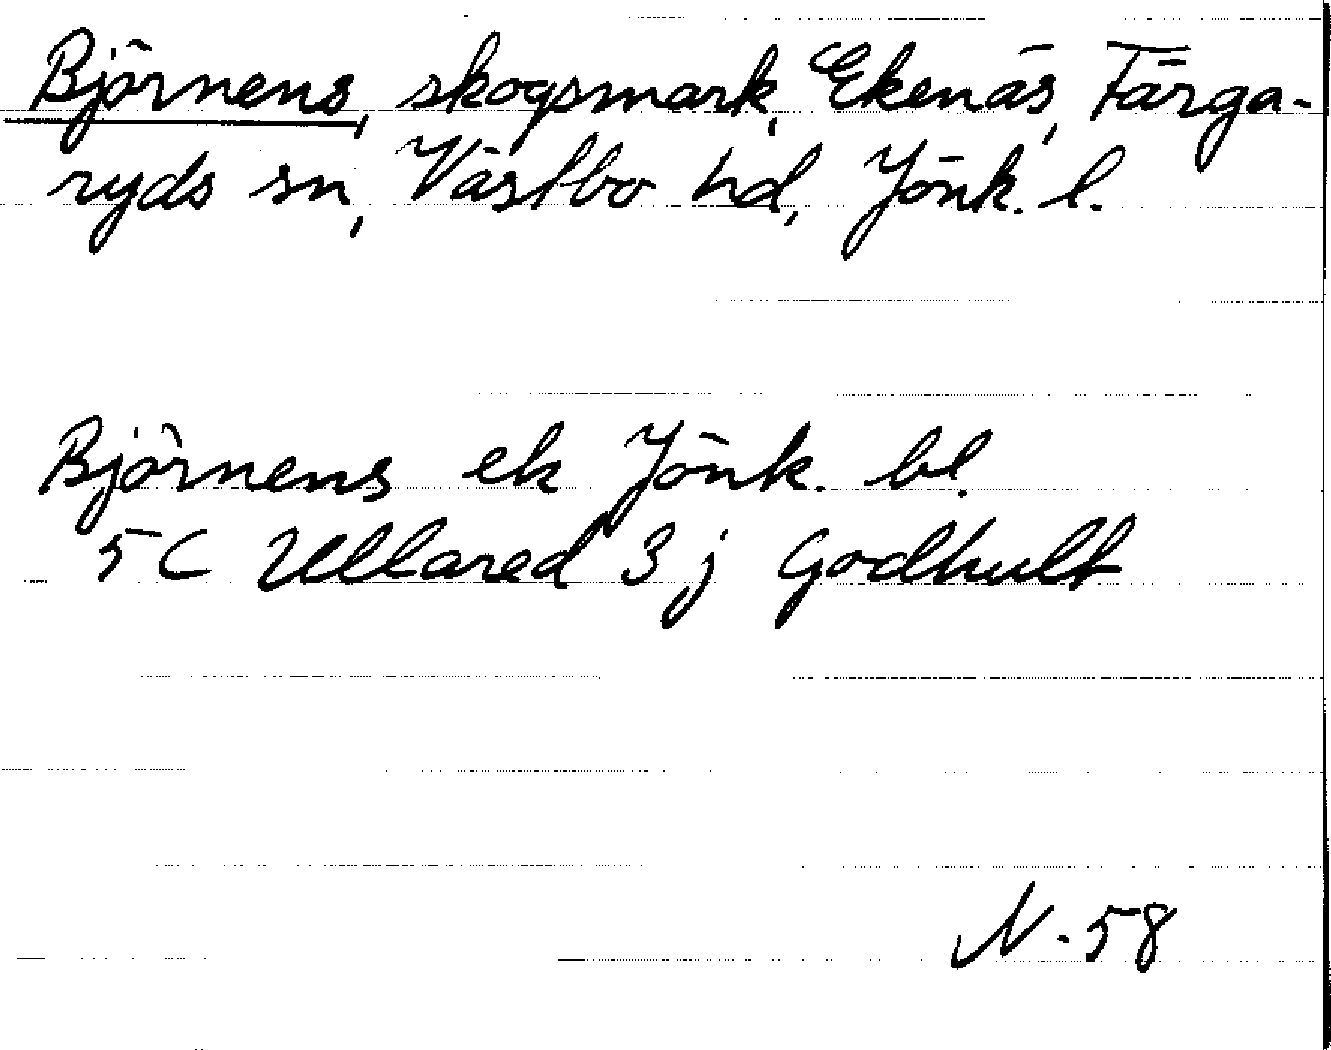 Björnens, skogsmark, Ekenäs, Färga-
ryds sn, Västbo hd, Jönk. l.
Björnens ek Jönk. bl.
5 C Ullared 3 j Godhult
N. 58